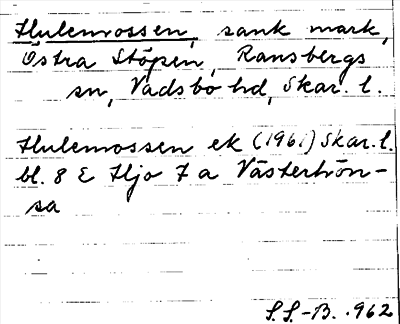 Hulemossen, sank mark,
Östra Stöpen, Ransbergs
sn, Vadsbo hd, Skar. l.
Hulemossen ek (1961) Skar. l.
bl. 8 E Hjo 7 a Västertrön-
sa
S.S.-B. .962